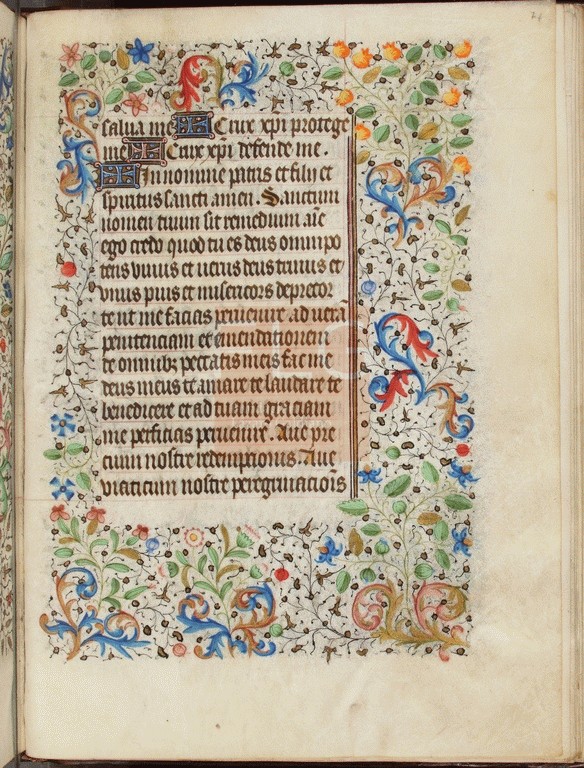 74
salua me Crux xpi protege
me Crux xpi defende me.
In nomine patris et filij et
spiritus sancti amen. Sanctum
nomen tuum sit remedium. aue
ego credo quod tu es deus omnipo
tens viuus et uerus deus trinus et
vnus pius et misericors deprecor
te ut me facias peruenire ad uerā
penitenciam et emendationem
de omnibꝫ peccatis meis fac me
deus meus te amare te laudare te
benedicere et ad tuam graciam
me perficias peruenire. Aue pre
cium nostre redemptionis. Aue
viaticum nostre peregrinacionis